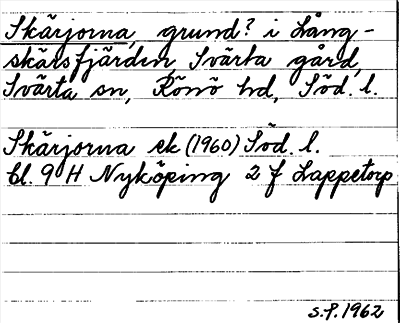 Skärjorna, grund? i Lång-
skärsfjärden Svärta gård,
Svärta sn, Rönö hd, Söd. l.
Skärjorna ek (1960) Söd. l.
bl. 9 H Nyköping 2 f Lappetorp
S.P. 1962